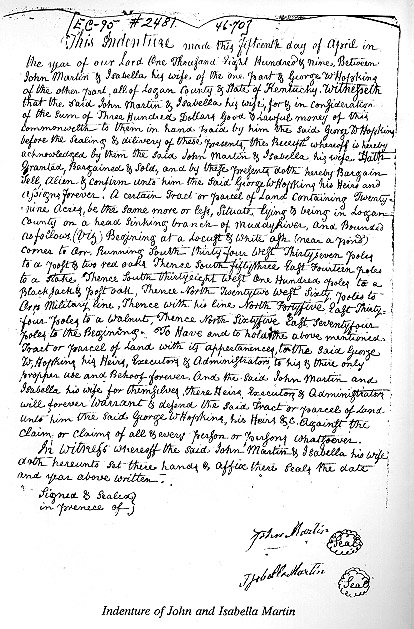 EC-95 #2481 46-707
This Indenture made this fifteenth day of April in
the year of our Lord One Thousand Eight Hundred & nine, Between
John Martin & Isabella his wife, of the one part & George W Hopking
of the other part, all of Logan County & State of Kentucky. Witnesseth
that the said John Martin & Isabella, his wife, for & in consideration
of the Sum of Three Hundred Dollars Good & Lawful money of this
commonwealth to them in hand paid by him the Said George W Hopking
before the Sealing & delivery of these presents, the Receipt whereof is hereby
acknowledged by them the Said John Martin & Isabella his wife Hath
Granted, Bargained & Sold, and by these presents doth hereby Bargain
Sell, Alien & Confirm unto him the Said George W Hopking his Heirs and
assigns forever. A certain Tract or parcel of Land Containing Twenty-
nine Acres, be the Same more or less, Situate, lying & being in Logan
County on a head Sinking branch of Muddy River, and Bounded
as follows (Viz) Begining at a Locust & White ash (near a pond)
corner to Orr Running South thirty four West Thirty seven poles
to a post & two red oaks Thence South fifty three East Fourteen poles
to a Stake, Thence South thirty eight West One Hundred poles to a
Blackjack & post oak, Thence North Twenty two West Sixty poles to
Orrs Military line, Thence with his line North Forty five East Thirty-
four poles to a Walnut, Thence North Sixty five East Seventy four
poles to the Begining. To Have and to hold the above mentioned
Tract or parcel of Land with its appertenances, to the Said George
W, Hopking his Heirs, Executors & Administrators to his & there only
propper use and Behoof forever. And the Said John Martin and
Isabella his wife for themselves, there Heirs, Executors & Administrators
will forever Warrant & defend the Said Tract or parcel of Land
unto him the Said George W Hopking, his Heirs &C. Against the
Claim or Claims of all & every person or persons whatsoever.
In Witness whereoff the Said John Martin & Isabella his wife
doth hereunto Set there hands & affix there Seals the date
and year above written
Signed & Sealed
in presence of
John Martin Seal
Isabella Martin Seal
Indenture of John and Isabella Martin